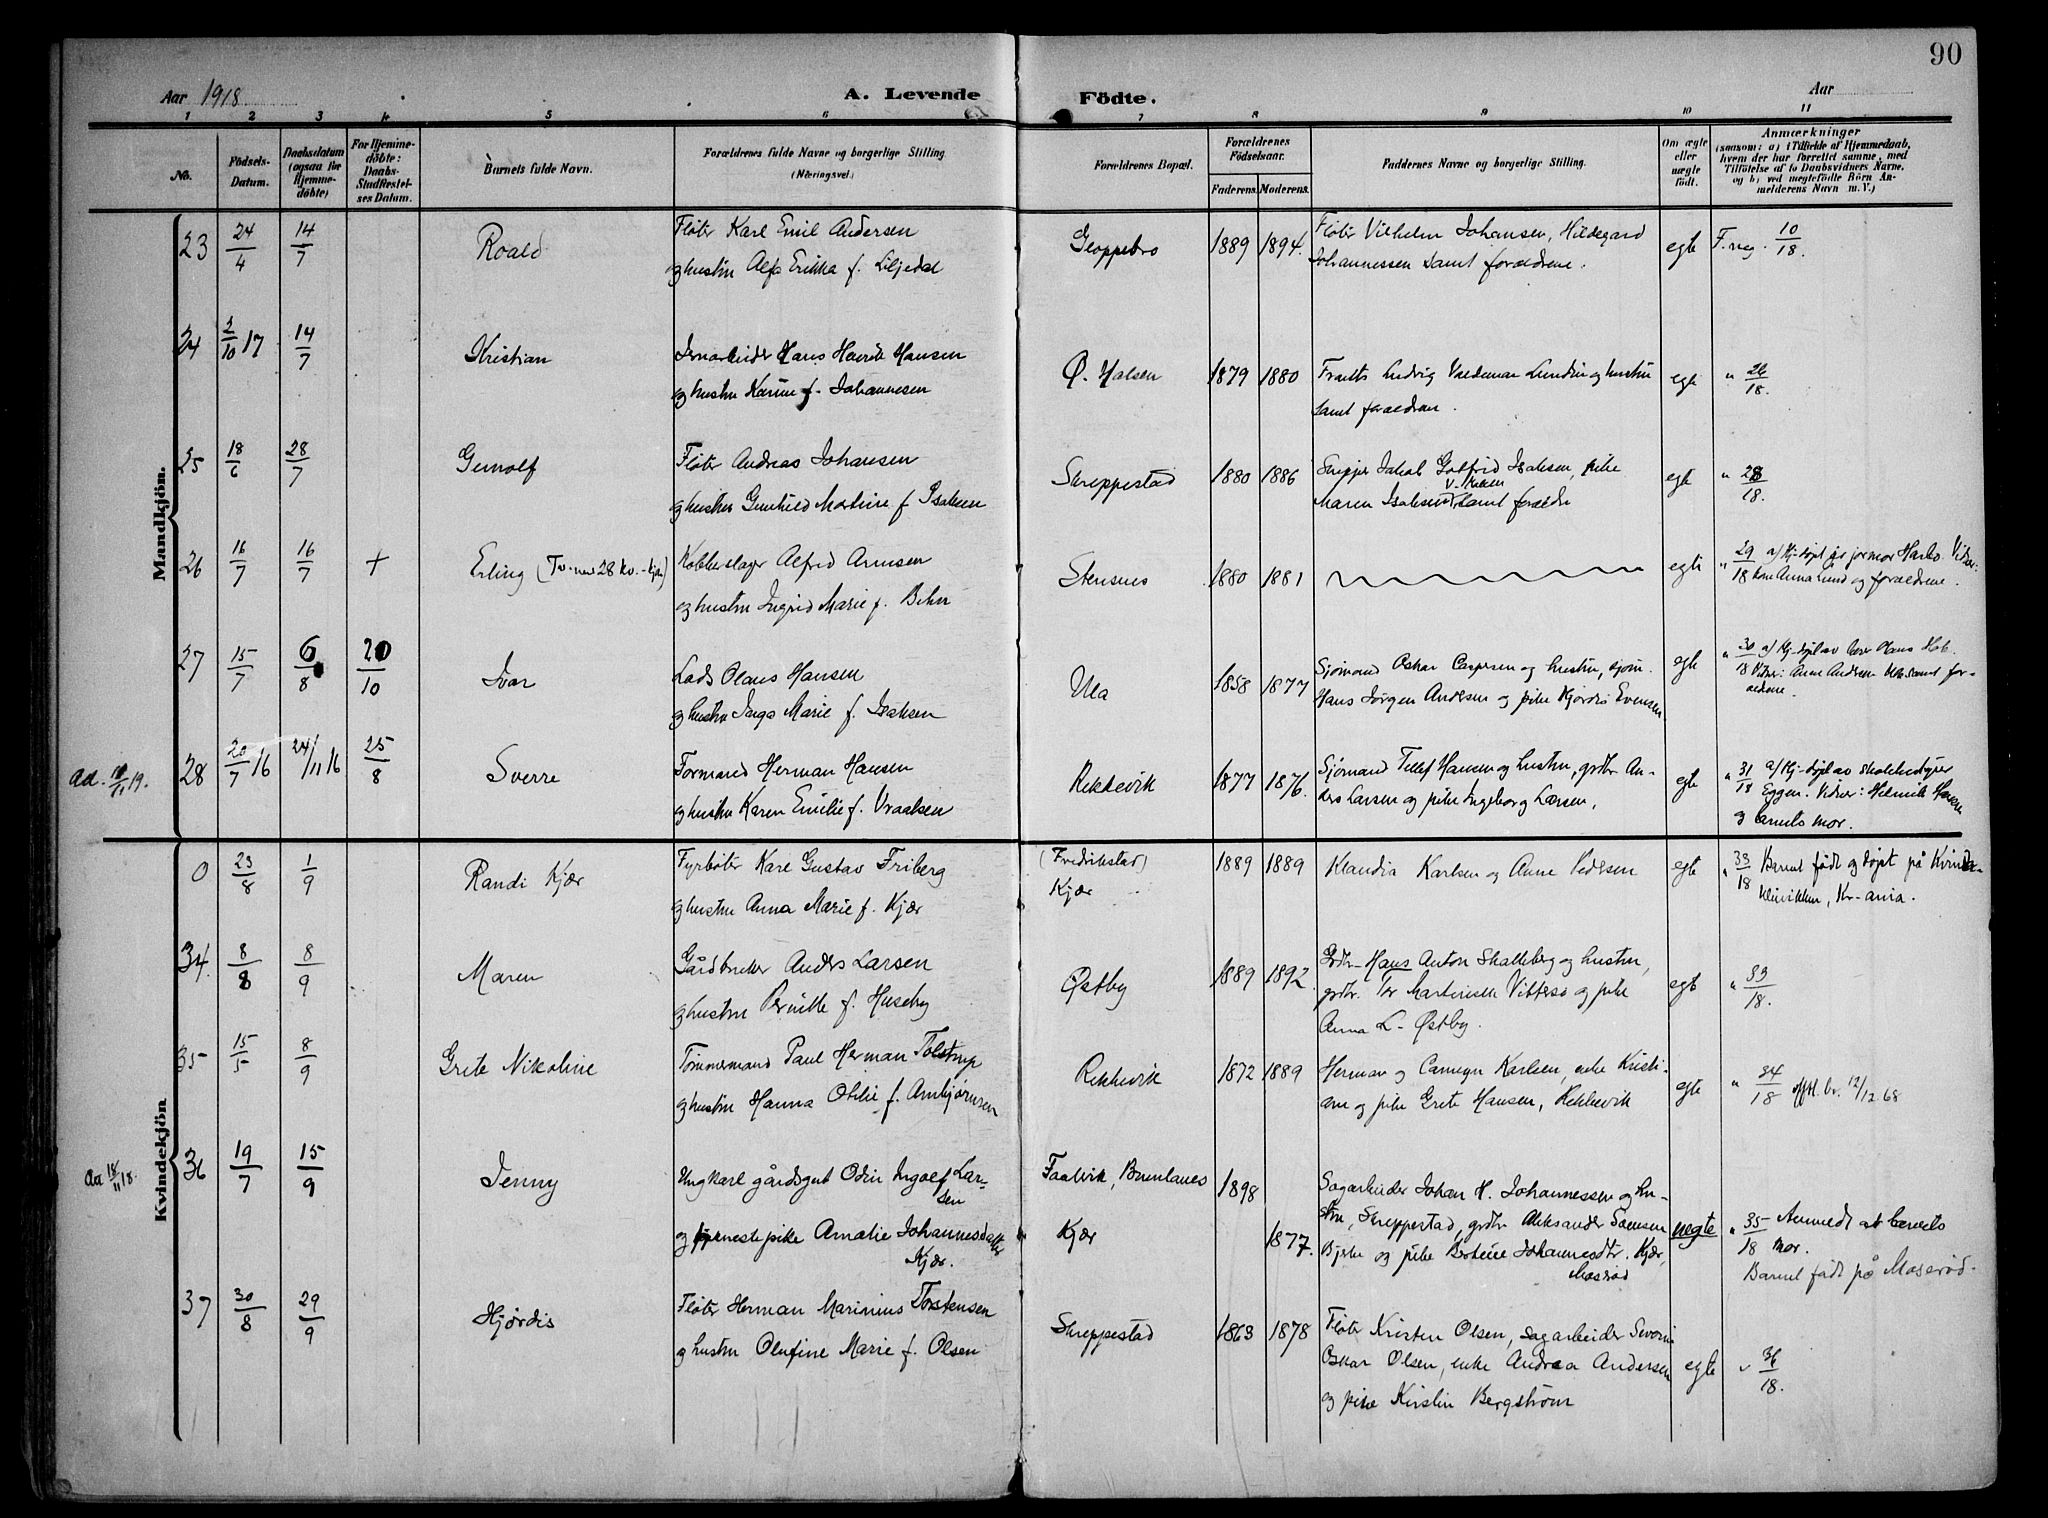 90
Aar 1918
A. Levende
Födte.
Aar
1 2 3 4 5 6 7 8 9 10 11
No.
Födsels-
Datum.
Daabsdatum
(ogsaa for
Hjemme-
döbte)
For Hjemme-
döbte:
Daabs-
Stadfæstel-
ses Datum.
Barnets fulde Navn.
Forældrenes fulde Navne og borgerlige Stilling
(Næringsvei.)
Forældrenes Bopæl.
Forældrenes
Födselsaar.
Faderens. Moderens.
Faddernes Navne og borgerlige Stilling.
Om ægte
eller
uægte
født.
Anmærkninger
(saasom: a) i Tilfælde af Hjemmedaab,
hvem der har forrettet samme, med
Tilføielse af to Daabsvidners Navne,
og b) ved uægtefödte Börn An-
melderens Navn m. V.)
Mandkjön.
23 24/4 14/7 Roald
Fløter Karl Emil Andersen
og hustru Alfa Erikka f. Liljedal
Gloppebro 1889 1894.
Fløter Vilhelm Johansen, Hildegard
Johannessen samt forældrene.
egte 10/18.
24 2/10 17 14/7 Kristian
Jernarbeider Hans Hansen
og hustru f. Johannesen
Ø. Halsen 1879 1880
Ludvig Valdemar Lundin og hustru
samt forældrene.
egte " 26/18.
25 18/6 28/7 Gunolf
Fløter Andreas Johansen
og hustru Gunhild Martine f. Isaksen
Skreppestad 1880 1886
Jakob Gotfrid Isaksen, pike
Maren Isaksen samt forældre
egte " 28/18.
26 16/7 16/7 + Erling
Kobberslager Alfred Arnesen
og hustru Ingrid Marie f. Behn
Stensnes 1880 1881
egte " 29/18 a/ Hj-døpt
kone Anna Lund og forældrene.
27 15/7 6/8 20/10 Ivar
Lods Olaus Hansen
og hustru Inga Marie f. Isaksen
Ula 1858 1877
Sjømand Oskar Caspersen og hustru, sjøm.
Hans Jørgen Andersen og pike Hjørdis Evensen.
egte " 30/18 a/ Hj-døpt av Hans
Vidner: Anne Andersen samt for-
ældrene.
Ad. 19.
28 20/7 16 24/11 16 25/8 Sverre
Formand Herman Hansen
og hustru Karen Emilie f. Vraalsen
Rekkevik 1877 1876.
Sjømand Tellef Hansen og hustru, grdbr. An-
ders Larsen og pike Ingeborg Larsen,
egte " 31/18 a/ Hj-døpt av skolebestyrer
Eggen. Vidner: Helmik Hansen
og barnets mor.
Kvindekjön
0 23/8 1/9 Randi Kjær
Fyrbøter Karl Gustav Friberg
og hustru Anna Marie f. Kjær
(Fredrikstad)
Kjær
1889 1889
Klaudia Karlsen og Anne Pedersen
egte " 33/18 Barnet født og døpt på Kvinde-
klinikken, Kr-ania.
34. 8/8 8/9 Maren
Gårdbruker Anders Larsen
og hustru Pernille f. Huseby
Østby 1889 1892.
Grdbr. Hans Anton Skalleberg og hustru,
grdbr. Tor Vittersø og pike
Anna L. Østby.
egte " 33/18.
35 15/5 8/9 Grete Nikoline
Tømmermand Paul Herman Tolstrup
og hustru Hanna Otilie f. Arnbjørnsen
Rekkevik 1872 1889
Herman og Karlsen, enke Kristi-
ane og pike Grete Hansen, Rekkevik
egte " 34/18 12/12.68
Aa 18/11 18.
36 19/7 15/9 Jenny
Ungkarl gårdsgut Odin Ingolf Lar-
sen
og tjenestepike Amalie Johannesdatter
Kjær.
Faalvik, Brunlanes 1898
Kjær 1877.
Sagarbeider Johan H. Johannessen og hu-
stru, Skreppestad, grdbr. Aleksander Sørensen
Bjerke og pike Bertine Johannesdtr. Kjær,
Moserød
uegte " 35/18 Anmeldt at barnets
mor.
Barnet født på Moserød.
37 30/8 29/9 Hjørdis
Fløter Herman Marinius Torstensen
og hustru Olufine Marie f. Olsen
Skreppestad 1863 1878
Fløter Kristen Olsen, sagarbeider Severin
Oskar Olsen, enke Andrea Andersen
og pike Kirstin Bergstrøm
egte " 36/18.